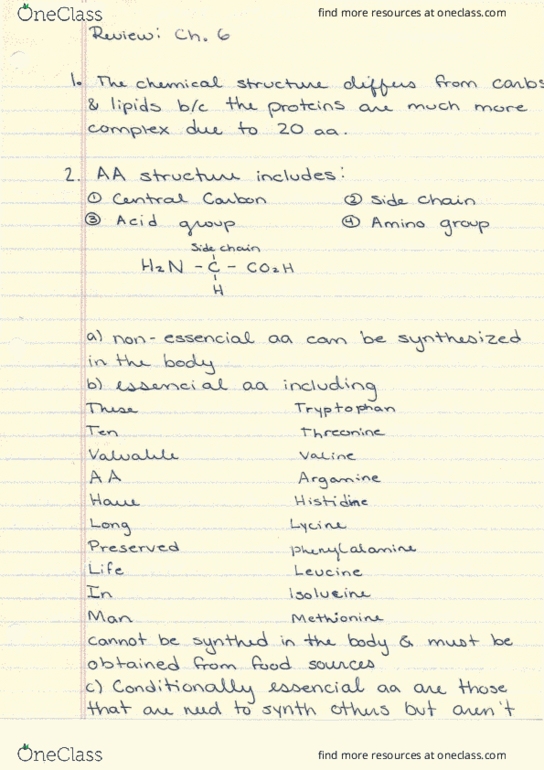 OneClass find more resources at oneclass.com
Review: Ch. 6
1. The chemical structure differs from carbs
& lipids b/c the proteins are much more
complex due to 20 aa.
2. AA structure includes:
① Central Carbon ② Side chain
③ Acid group ④ Amino group
Side chain
H₂N - C - CO₂H
H
a) non-essencial aa can be synthesized
in the body
b) essencial aa including
These Tryptophan
Ten Threonine
Valuable Valine
AA Argamine
Have Histidine
Long Lycine
Preserved phenylalamine
Life Leucine
In Isolueine
Man Methionine
cannot be synthed in the body & must be
obtained from food sources
c) Conditionally essencial aa are those
that are need to synth others but aren't
OneClass find more resources at oneclass.com